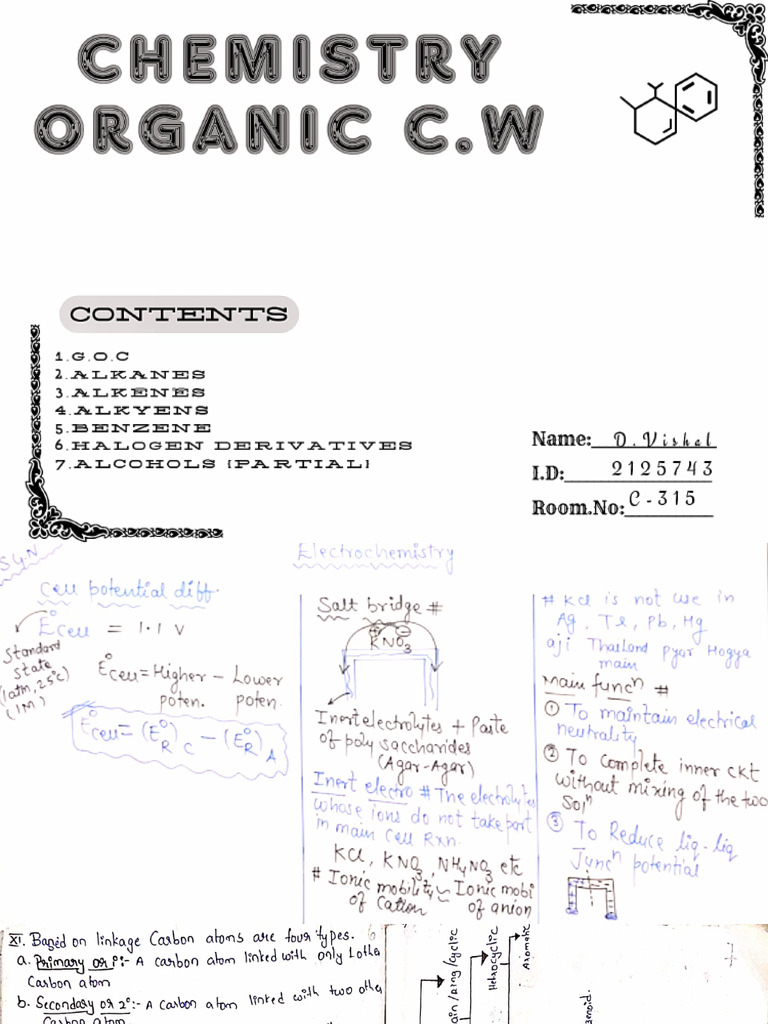 CHEMISTRY
ORGANIC C.W
CONTENTS
1.G.O.C
2.ALKANES
3.ALKENES
4.ALKYENS
5.BENZENE
6.HALOGEN DERIVATIVES
7.ALCOHOLS (PARTIAL)
Name: D.Vishal
I.D: 2125743
Room.No: C-315
Electrochemistry
Cell potential diff.
E°cell = 1.1 V
Standard
state
(1atm, 25°c)
(1M)
E°cell = Higher - Lower
poten. poten.
E°cell = (E°R)C - (E°R)A
Salt bridge #
KNO3
Inert electrolytes + Paste
of poly saccharides
(Agar-Agar)
Inert electro # The electrolytes
whose ions do not take part
in main Cell Rxn.
KCl, KNO3, NH4NO3 etc
# Ionic mobility ~ Ionic mobi
of Cation of anion
# KCl is not use in
Ag, Tl, Pb, Hg
aji Thailand pyar Hogya
main
Main funcn #
① To maintain electrical
neutrality
② To complete inner ckt
without mixing of the two
Soln
③ To Reduce liq-liq
Juncn potential
XI. Based on linkage Carbon atoms are four types.
a. Primary or 1°:- A carbon atom linked with only 1 othe
Carbon atom
b. Secondary or 2°:- A carbon atom linked with two othe
Carbon atom
ain/Ring/Cyclic
Hetrocyclic
Aromatic
enoid.